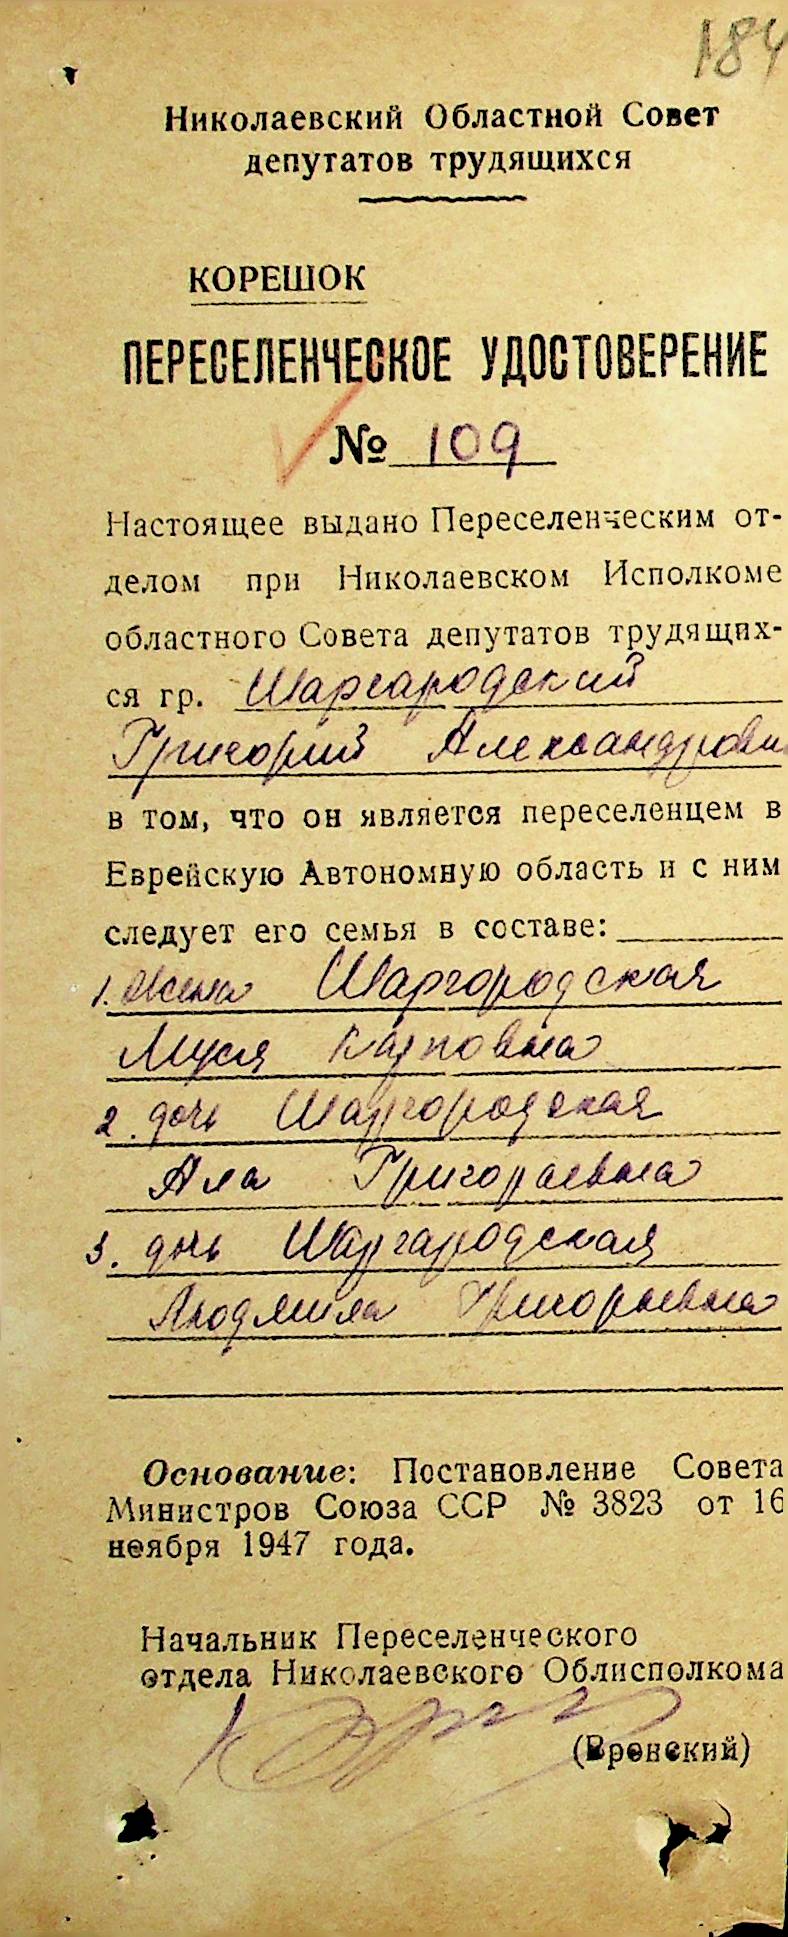 184
Николаевский Областной Совет
депутатов трудящихся
КОРЕШОК
ПЕРЕСЕЛЕНЧЕСКОЕ УДОСТОВЕРЕНИЕ
№ 109
Настоящее выдано Переселенческим от-
делом при Николаевском Исполкоме
областного Совета депутатов трудящих-
ся гр. Шаргародский
Григорий Александрови
в том, что он является переселенцем в
Еврейскую Автономную область и с ним
следует его семья в составе:
1. Жена Шаргородская
Муся Карповна
2. дочь Шаргородская
Ала Григорьевна
3. дочь Шаргародская
Людмила Григорьевна
Основание: Постановление Совета
Министров Союза ССР № 3823 от 16
ноября 1947 года.
Начальник Переселенческого
отдела Николаевского Облисполкома
(Вронский)